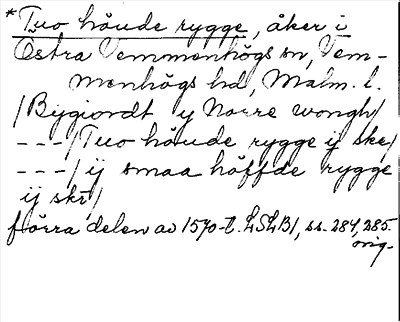 *Tuo håude rygge, åker i
Östra Vemmenhögs sn, Vem-
menhögs hd, Malm. l.
/Bygiordt y Norre wongh/
---/Tuo håude rygge ij skr/
---/ij smaa höffde rygge
ij skr/
förra delen av 1570-t. LSLB/, ss. 284, 285.
orig.